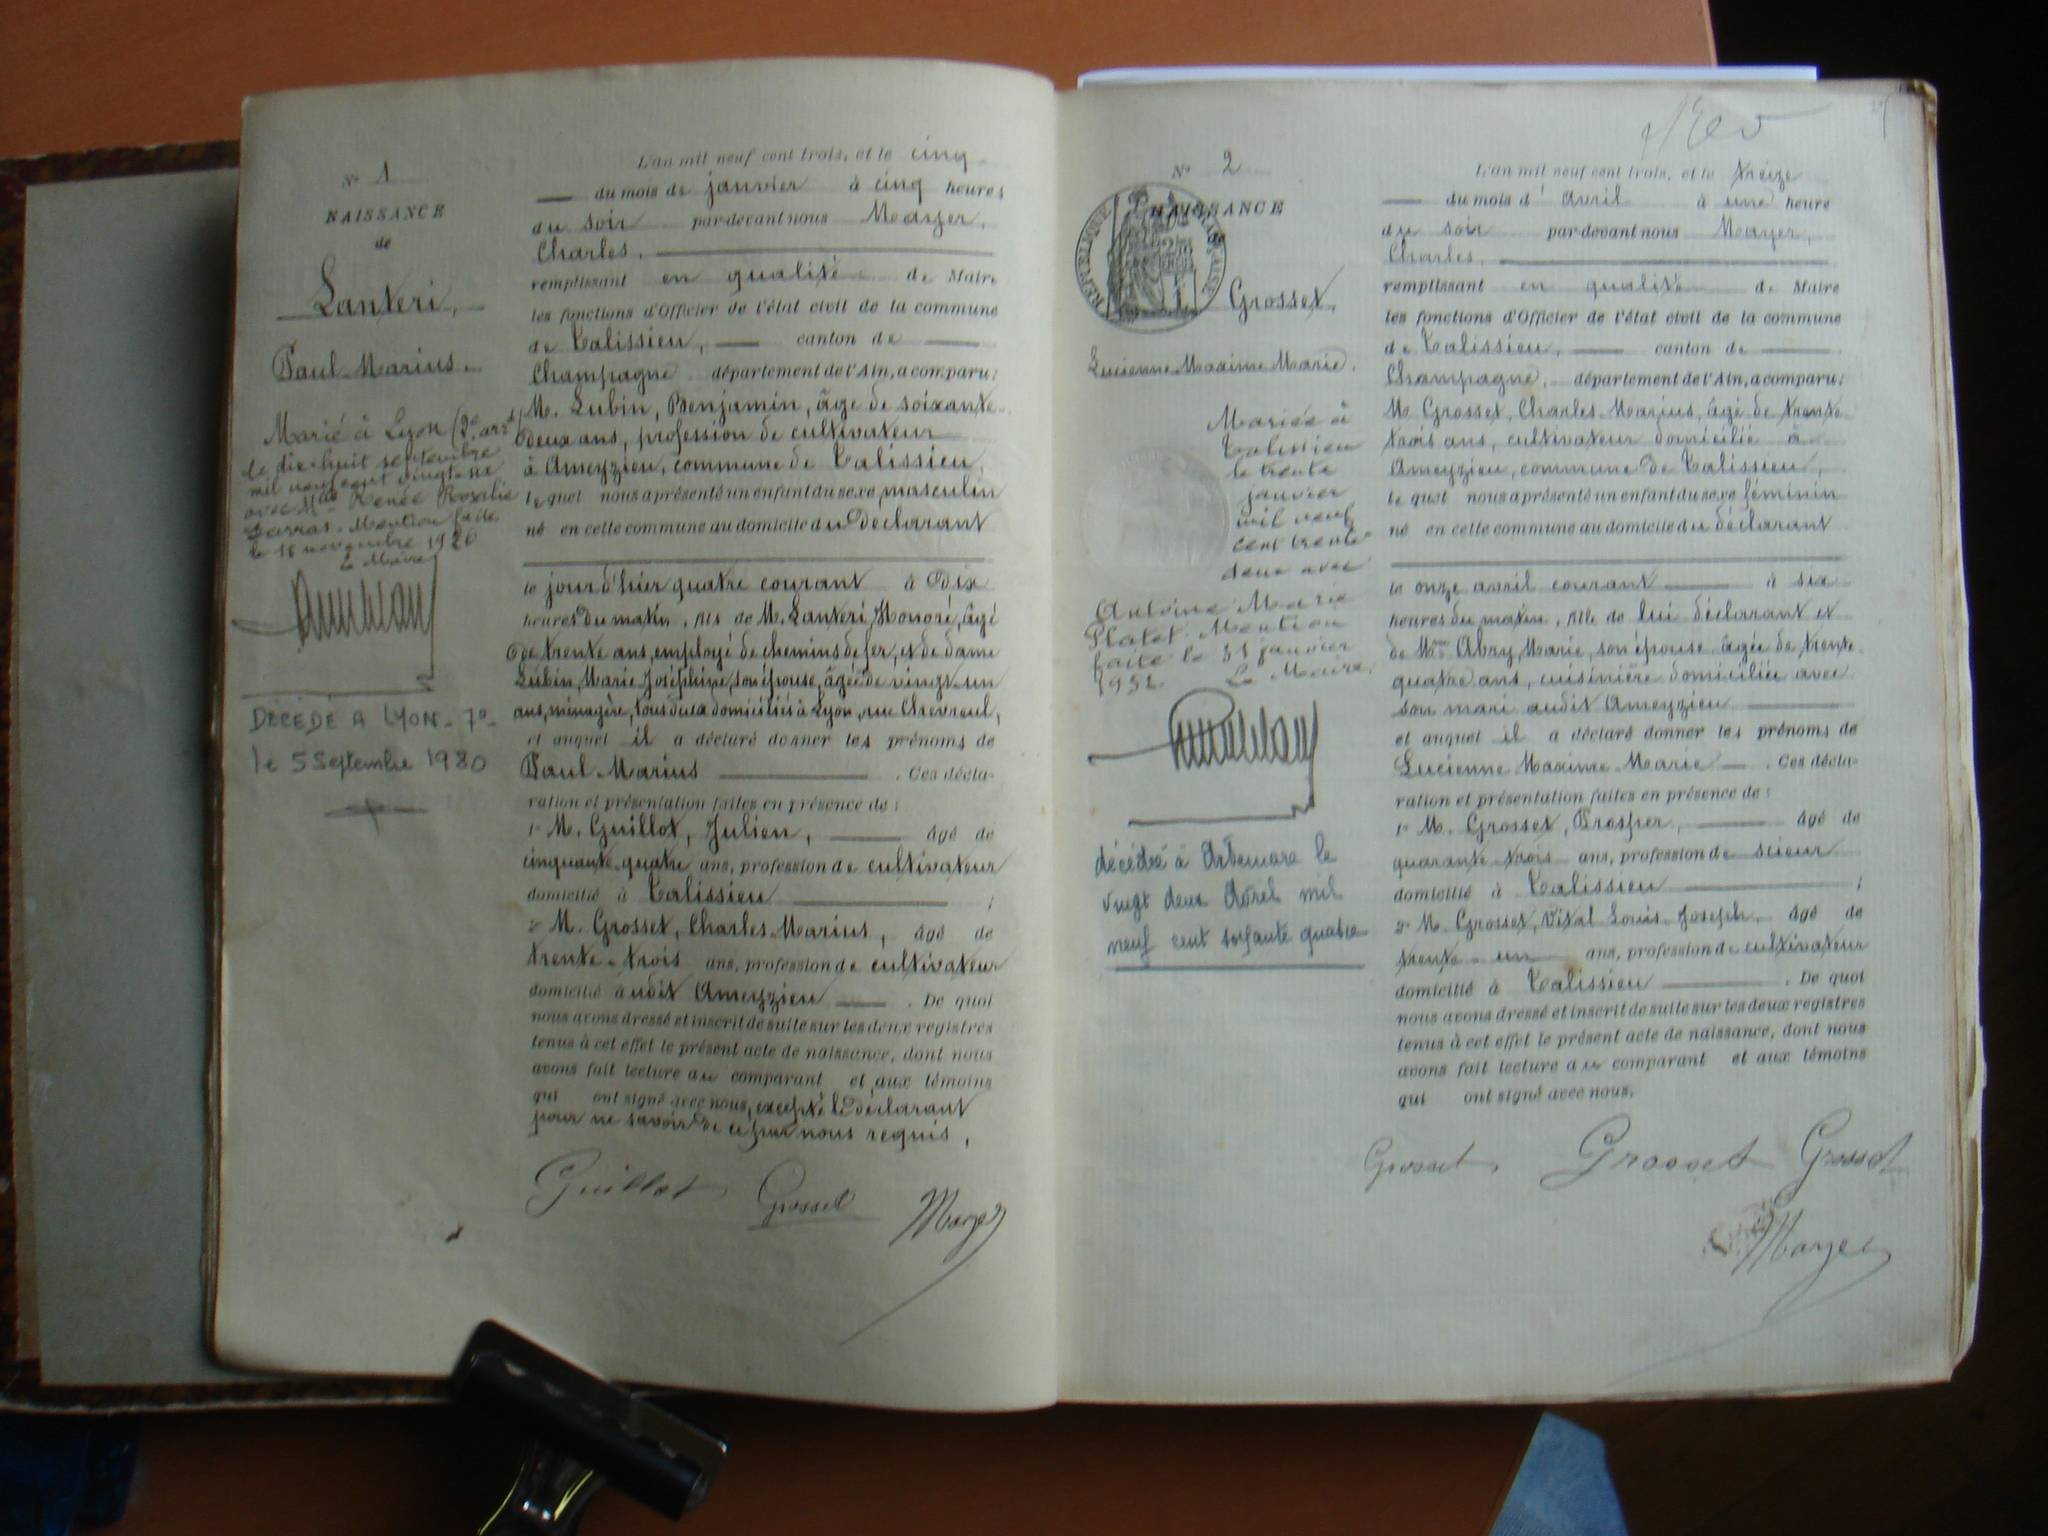 N° 1
NAISSANCE
de
Lanteri,
Paul Marius.
Marié à Lyon (2e arrt)
le dix-huit septembre
mil neuf cent vingt-
avec Mlle Renée Rosalie
Barras. Mention faite
le 18 novembre 1926
Le Maire
DÉCÉDÉ A LYON - 7e -
le 5 Septembre 1980
L'an mil neuf cent trois, et le cinq
du mois de janvier à cinq heures
du soir par-devant nous Mayer,
Charles,
remplissant en qualité de Maire
les fonctions d'Officier de l'état civil de la commune
de Talissieu, canton de
Champagne département de l'Ain, a comparu :
M. Lubin, Benjamin, âgé de soixante-
deux ans, profession de cultivateur
à Ameyzieu, commune de Talissieu,
lequel nous a présenté un enfant du sexe masculin
né en cette commune au domicile du déclarant
le jour d'hier quatre courant à dix
heures du matin, fils de M. Lanteri, Honoré, âgé
de trente ans, employé de chemins de fer, et de dame
Lubin, Marie Joséphine, son épouse, âgée de vingt-un
ans, ménagère, tous deux domiciliés à Lyon, rue Chevreul,
et auquel il a déclaré donner les prénoms de
Paul Marius . Ces décla-
ration et présentation faites en présence de :
1° M. Guillot, Julien, âgé de
cinquante-quatre ans, profession de cultivateur
domicilié à Talissieu ;
2° M. Grosset, Charles Marius, âgé de
trente-trois ans, profession de cultivateur
domicilié audit Ameyzieu . De quoi
nous avons dressé et inscrit de suite sur les deux registres
tenus à cet effet le présent acte de naissance, dont nous
avons fait lecture au comparant et aux témoins
qui ont signé avec nous, excepté le déclarant
pour ne savoir de ce par nous requis,
Guillot Grosset Mayer
N° 2
NAISSANCE
de
RÉPUBLIQUE FRANÇAISE
Grosset,
Lucienne Maxime Marie.
Mariée à
Talissieu
le trente
janvier
mil neuf
cent trente
deux avec
Antoine Marie
Platet. Mention
faite le 31 janvier
1932. Le Maire.
décédée à Artemare le
vingt deux Avril mil
neuf cent soixante quatre
L'an mil neuf cent trois, et le treize
du mois d'avril à une heure
du soir par-devant nous Mayer,
Charles,
remplissant en qualité de Maire
les fonctions d'Officier de l'état civil de la commune
de Talissieu, canton de
Champagne, département de l'Ain, a comparu :
M. Grosset, Charles Marius, âgé de trente-
trois ans, cultivateur domicilié à
Ameyzieu, commune de Talissieu,
lequel nous a présenté un enfant du sexe féminin
né en cette commune au domicile du déclarant
le onze avril courant à six
heures du matin, fille de lui déclarant et
de Mme Abry, Marie, son épouse, âgée de trente-
quatre ans, cuisinière domiciliée avec
son mari audit Ameyzieu
et auquel il a déclaré donner les prénoms de
Lucienne Maxime Marie . Ces décla-
ration et présentation faites en présence de :
1° M. Grosset, Prosper, âgé de
quarante-trois ans, profession de scieur
domicilié à Talissieu ;
2° M. Grosset, Vital Louis Joseph, âgé de
trente-un ans, profession de cultivateur
domicilié à Talissieu . De quoi
nous avons dressé et inscrit de suite sur les deux registres
tenus à cet effet le présent acte de naissance, dont nous
avons fait lecture au comparant et aux témoins
qui ont signé avec nous.
Grosset Grosset Grosset
Mayer